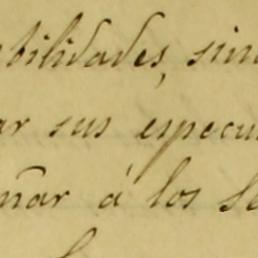 bilidades, sin
ar sus especu
ñar á los Se